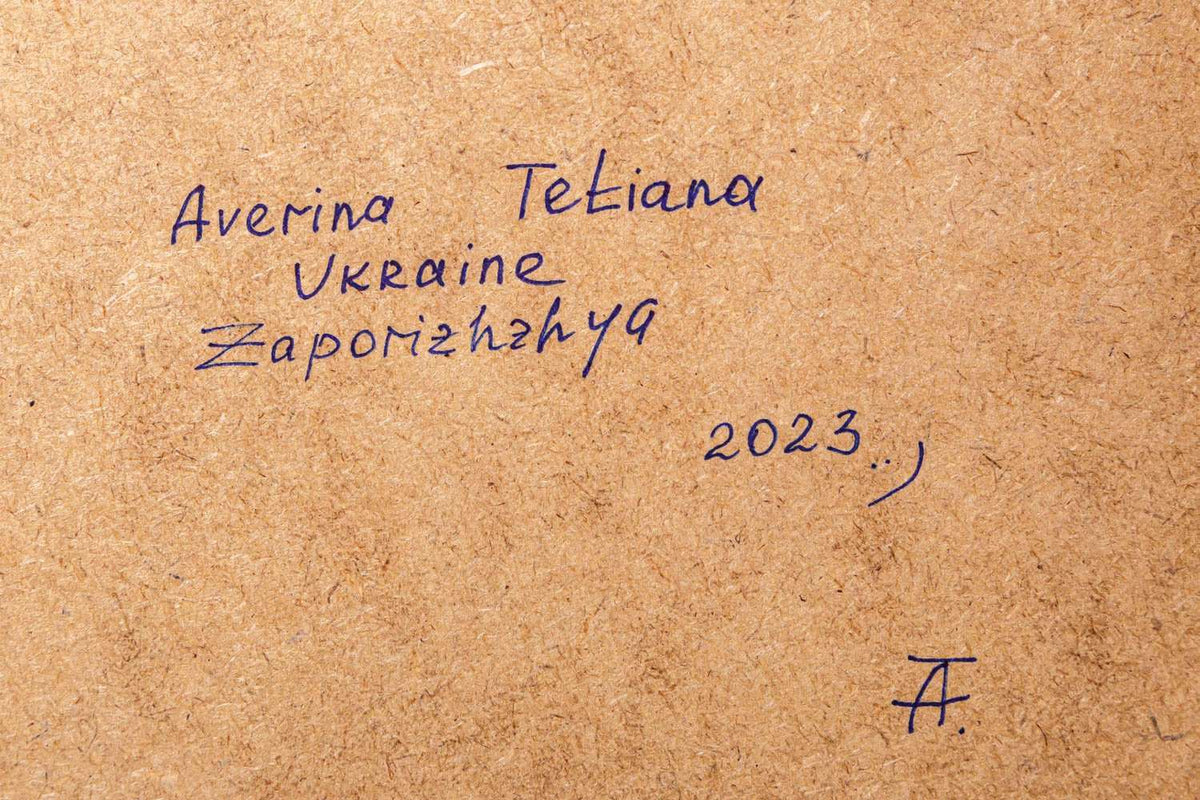 Averina Tetiana
Ukraine
Zaporizhzhya
2023..,
TA.